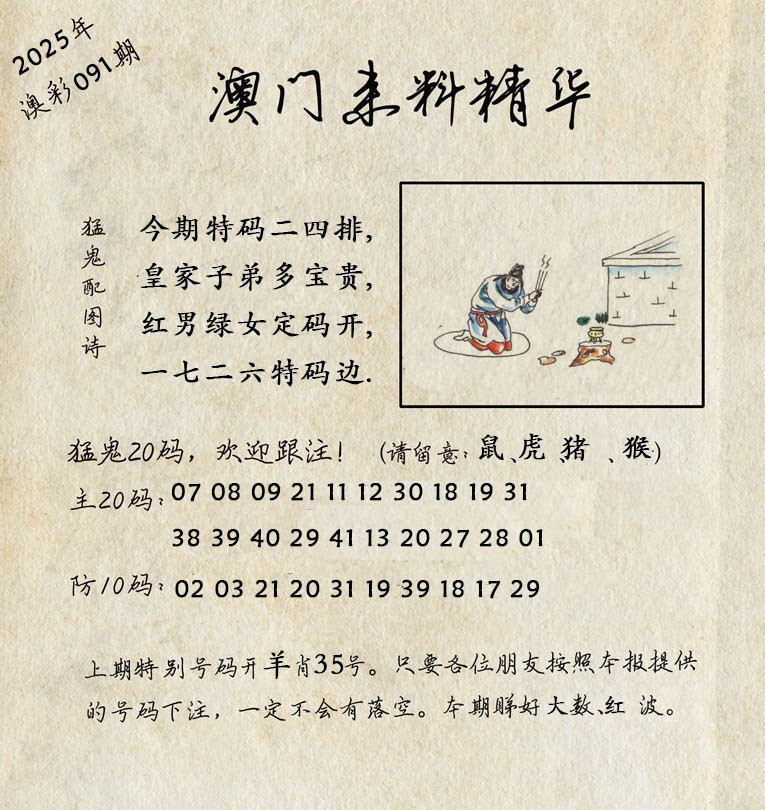 2025年
澳彩091期
澳门来料精华
猛鬼配图诗
今期特码二四排,
皇家子弟多宝贵,
红男绿女定码开,
一七二六特码边.
猛鬼20码，欢迎跟注！（请留意：鼠、虎、猪、猴）
主20码：07 08 09 21 11 12 30 18 19 31
38 39 40 29 41 13 20 27 28 01
防10码：02 03 21 20 31 19 39 18 17 29
上期特别号码开羊肖35号。只要各位朋友按照本报提供
的号码下注，一定不会有落空。本期睇好大数、红 波。